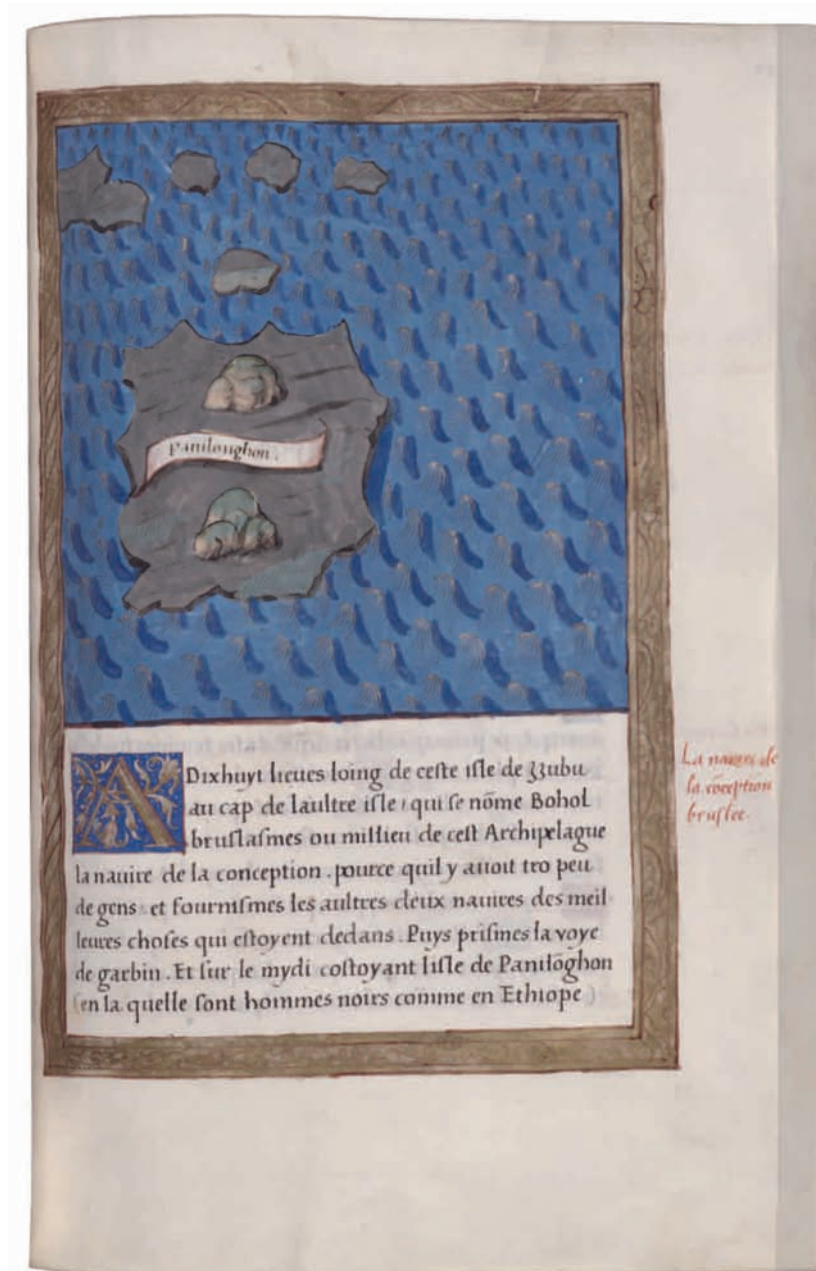 Panilonghon.
A Dixhuyt lieues loing de ceste isle de Zzubu
au cap de laultre isle, qui se nõme Bohol
bruslasmes ou millieu de cest Archipelague
la nauire de la conception. pource quil y auoit tro peu
de gens. et fournismes les aultres deux nauires des meil
leures choses qui estoyent dedans. Puys prismes la voye
de garbin. Et sur le mydi costoyant lisle de Panilõghon
(en la quelle sont hommes noirs comme en Ethiope)
La nauire de
la cõception
bruslee.